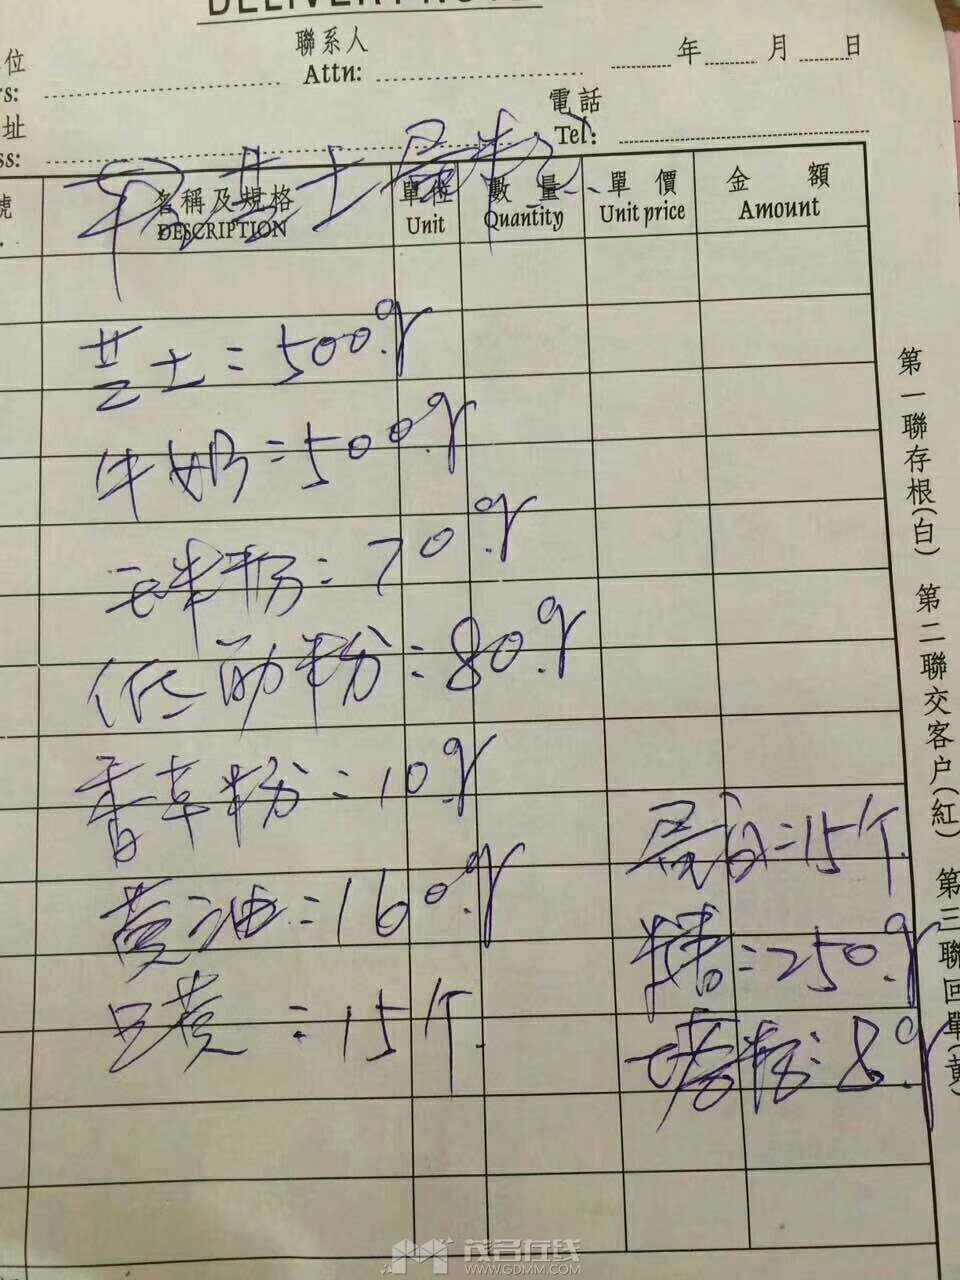 DELIVERY NOTE
位 聯系人 年 月 日
Attn:
址 電話
Tel:
芝士蛋糕
號 名稱及規格 單位 數量 單價 金額
DESCRIPTION Unit Quantity Unit price Amount
芝士=500g
牛奶=500g
玉米粉=70g
低筋粉=80g
香草粉=10g
黄油=160g
旦黄=15个
蛋白=15个
糖=250g
塔粉=8g
第一聯存根(白) 第二聯交客户(紅) 第三聯回單(黄)
茂名在线
WWW.GDMM.COM